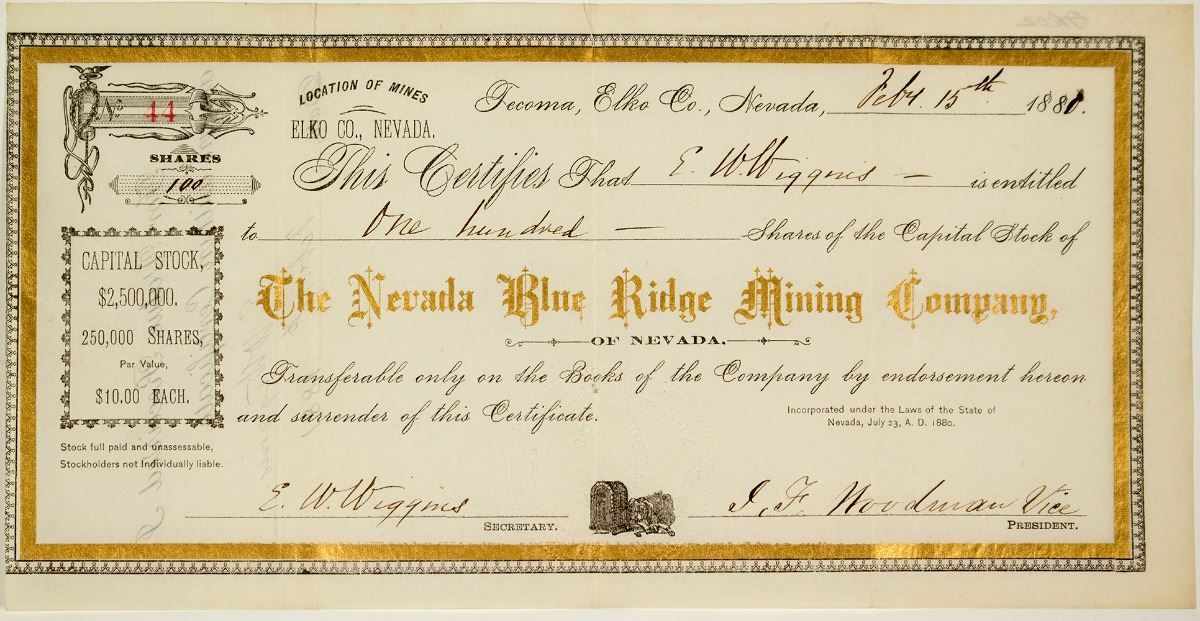 No 44
SHARES
100
LOCATION OF MINES
ELKO CO., NEVADA.
Tecoma, Elko Co., Nevada, Feby. 15th 1881.
This Certifies That E. W. Wiggins — is entitled
to One hundred — Shares of the Capital Stock of
The Nevada Blue Ridge Mining Company,
OF NEVADA.
Transferable only on the Books of the Company by endorsement hereon
and surrender of this Certificate.
Incorporated under the Laws of the State of
Nevada, July 23, A. D. 1880.
CAPITAL STOCK,
$2,500,000.
250,000 SHARES,
Par Value,
$10.00 EACH.
Stock full paid and unassessable,
Stockholders not Individually liable.
E. W. Wiggins
SECRETARY.
J. F. Woodman Vice
PRESIDENT.